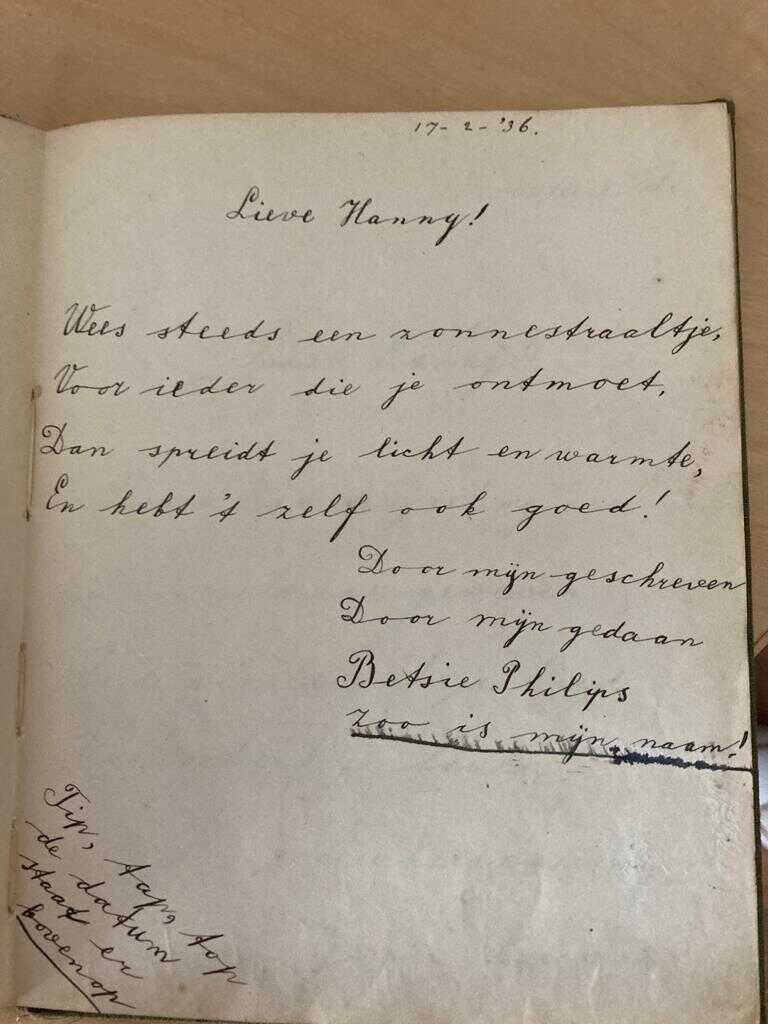 17-2-'36.
Lieve Hanny!
Wees steeds een zonnestraaltje,
Voor ieder die je ontmoet,
Dan spreidt je licht en warmte,
En hebt 't zelf ook goed!
Door mijn geschreven
Door mijn gedaan
Betsie Philips
Zoo is mijn naam!
Tip, tap, top
de datum
staat er
bovenop